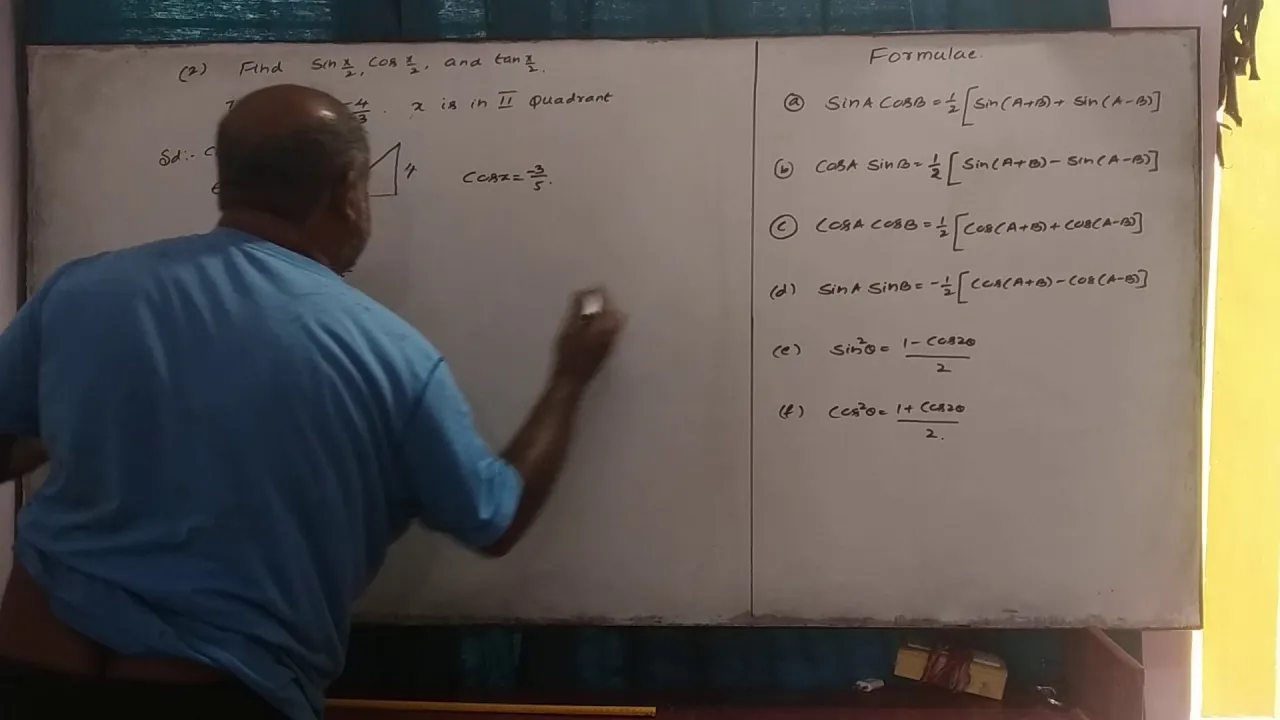 (2) Find Sin x/2, Cos x/2, and tan x/2.
-4/3. x is in II Quadrant
Sol:-
4
Cosx = -3/5.
Formulae.
(a) SinA CosB = 1/2 [Sin(A+B) + Sin(A-B)]
(b) CosA SinB = 1/2 [Sin(A+B) - Sin(A-B)]
(c) CosA CosB = 1/2 [Cos(A+B) + Cos(A-B)]
(d) SinA SinB = -1/2 [Cos(A+B) - Cos(A-B)]
(e) Sin²θ = 1 - Cos2θ / 2
(f) Cos²θ = 1 + Cos2θ / 2.